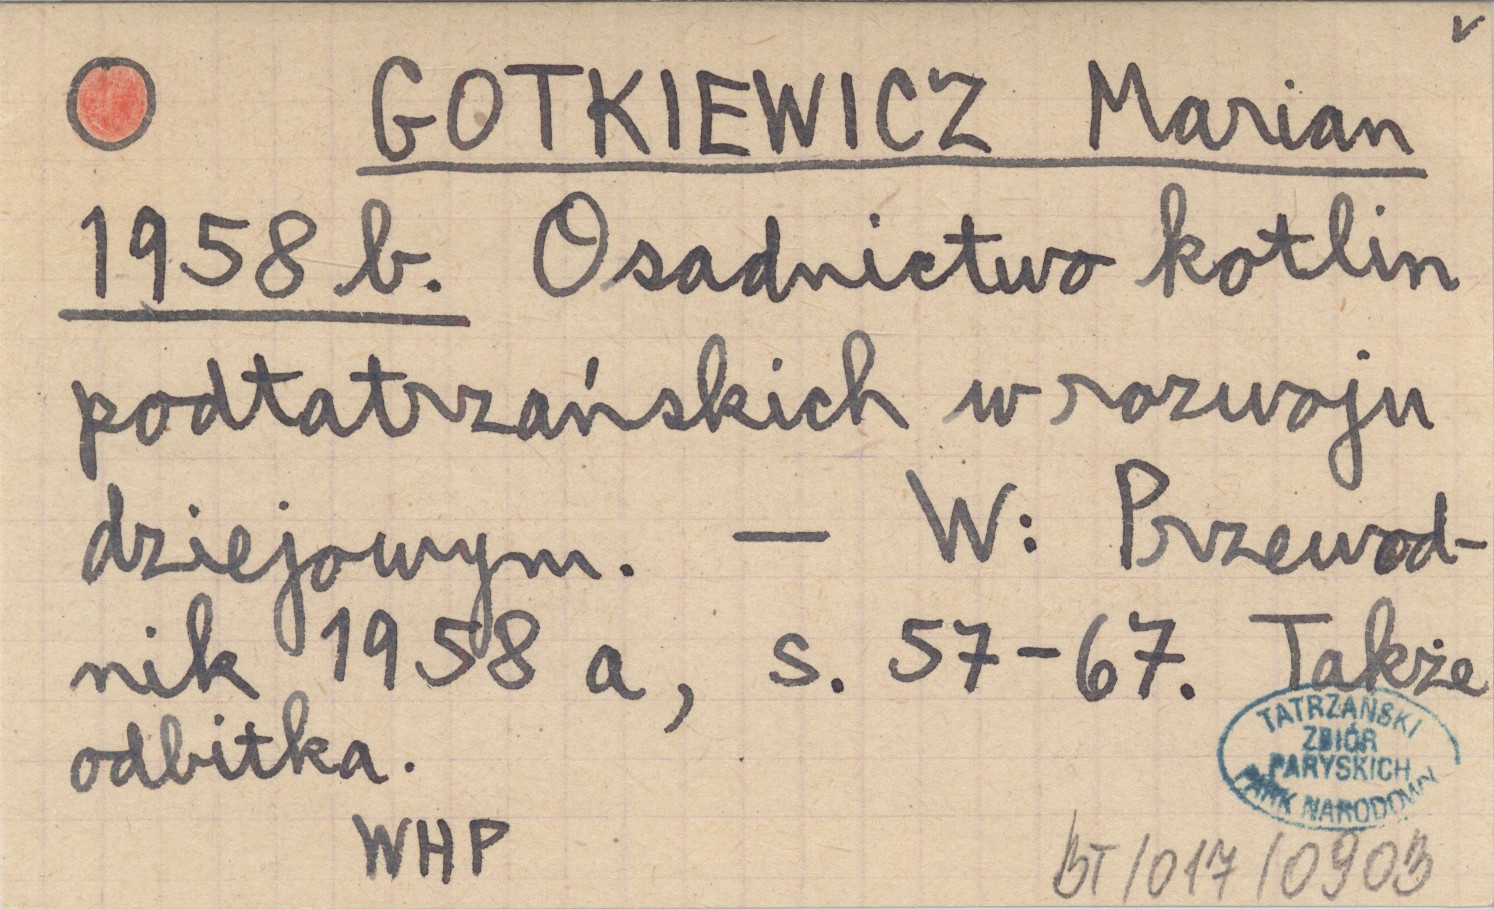 GOTKIEWICZ Marian
1958 b. Osadnictwo kotlin
podtatrzańskich w rozwoju
dziejowym. — W: Przewod-
nik 1958 a, s. 57-67. Także
odbitka.
TATRZAŃSKI
ZBIÓR
PARYSKICH
PARK NARODOWY
WHP
BT/017/0903